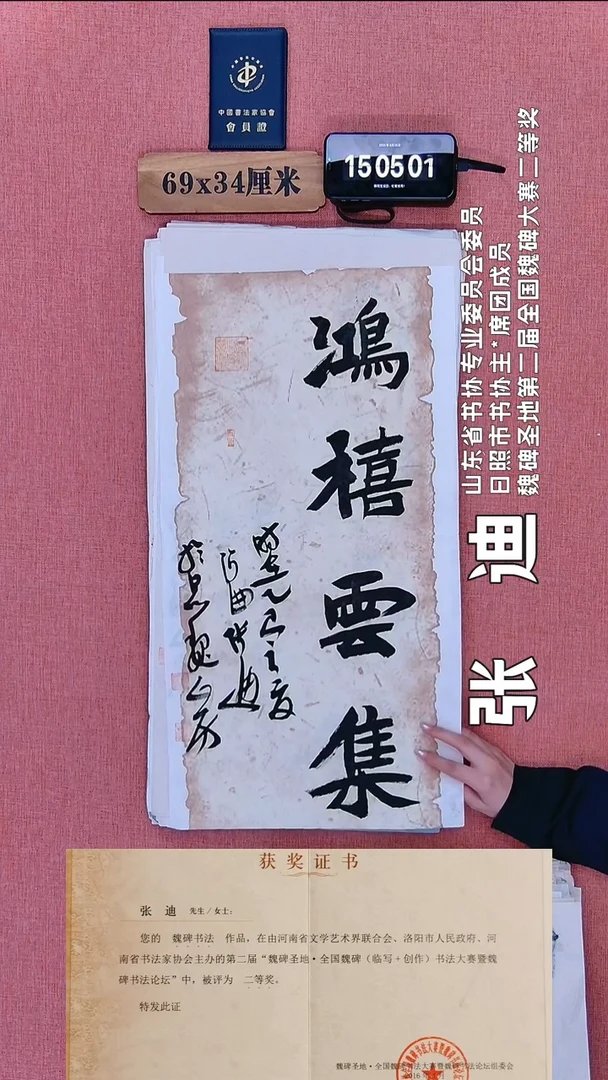 中國書法家協會
會員證
69x34厘米
15:05:01
山东省书协专业委员会委员
日照市书协主*席团成员
魏碑圣地第二届全国魏碑大赛二等奖
张 迪
鴻禧雲集
获奖证书
张 迪 先生/女士：
您的 魏碑书法 作品，在由河南省文学艺术界联合会、洛阳市人民政府、河
南省书法家协会主办的第二届“魏碑圣地·全国魏碑（临写+创作）书法大赛暨魏
碑书法论坛”中，被评为 二等奖。
特发此证
魏碑圣地·全国魏碑书法大赛暨魏碑书法论坛组委会